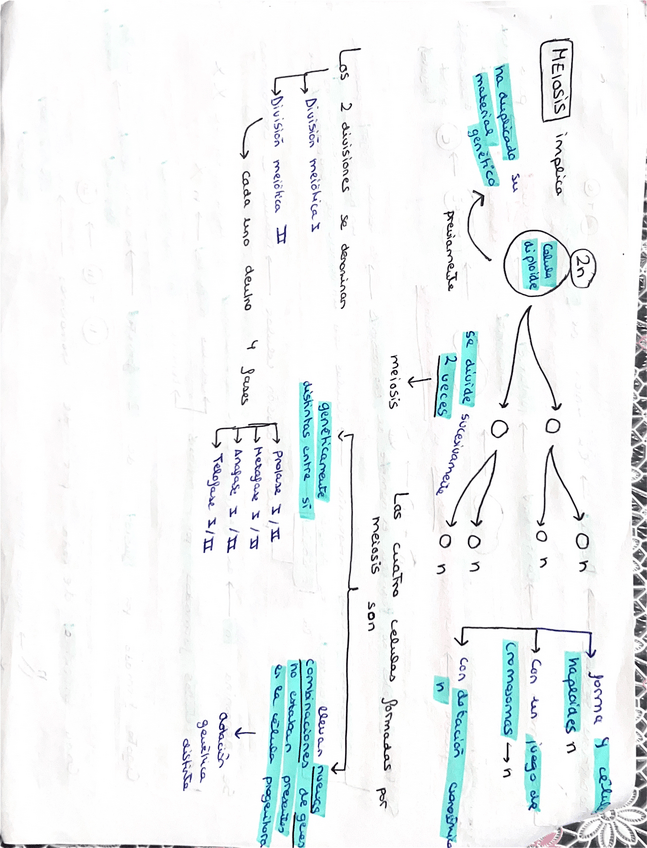 MEIOSIS implica
2n
Célula
diploide
ha duplicado su
material
genético
previamente
se divide sucesivamente
2 veces
meiosis
n
n
n
n
forma 4
haploides n
Con un juego de
cromosomas → n
con dotación
n
Las cuatro células formadas por
meiosis son
genéticamente
distintas entre sí
llevan nuevas
combinaciones de genes
no estaban presentes
en la célula progenitora
dotación
genética
distinta
Las 2 divisiones se denominan
División meiótica I
División meiótica II
cada uno dentro 4 fases
Profase I/II
Metafase I/II
Anafase I/II
Telofase I/II